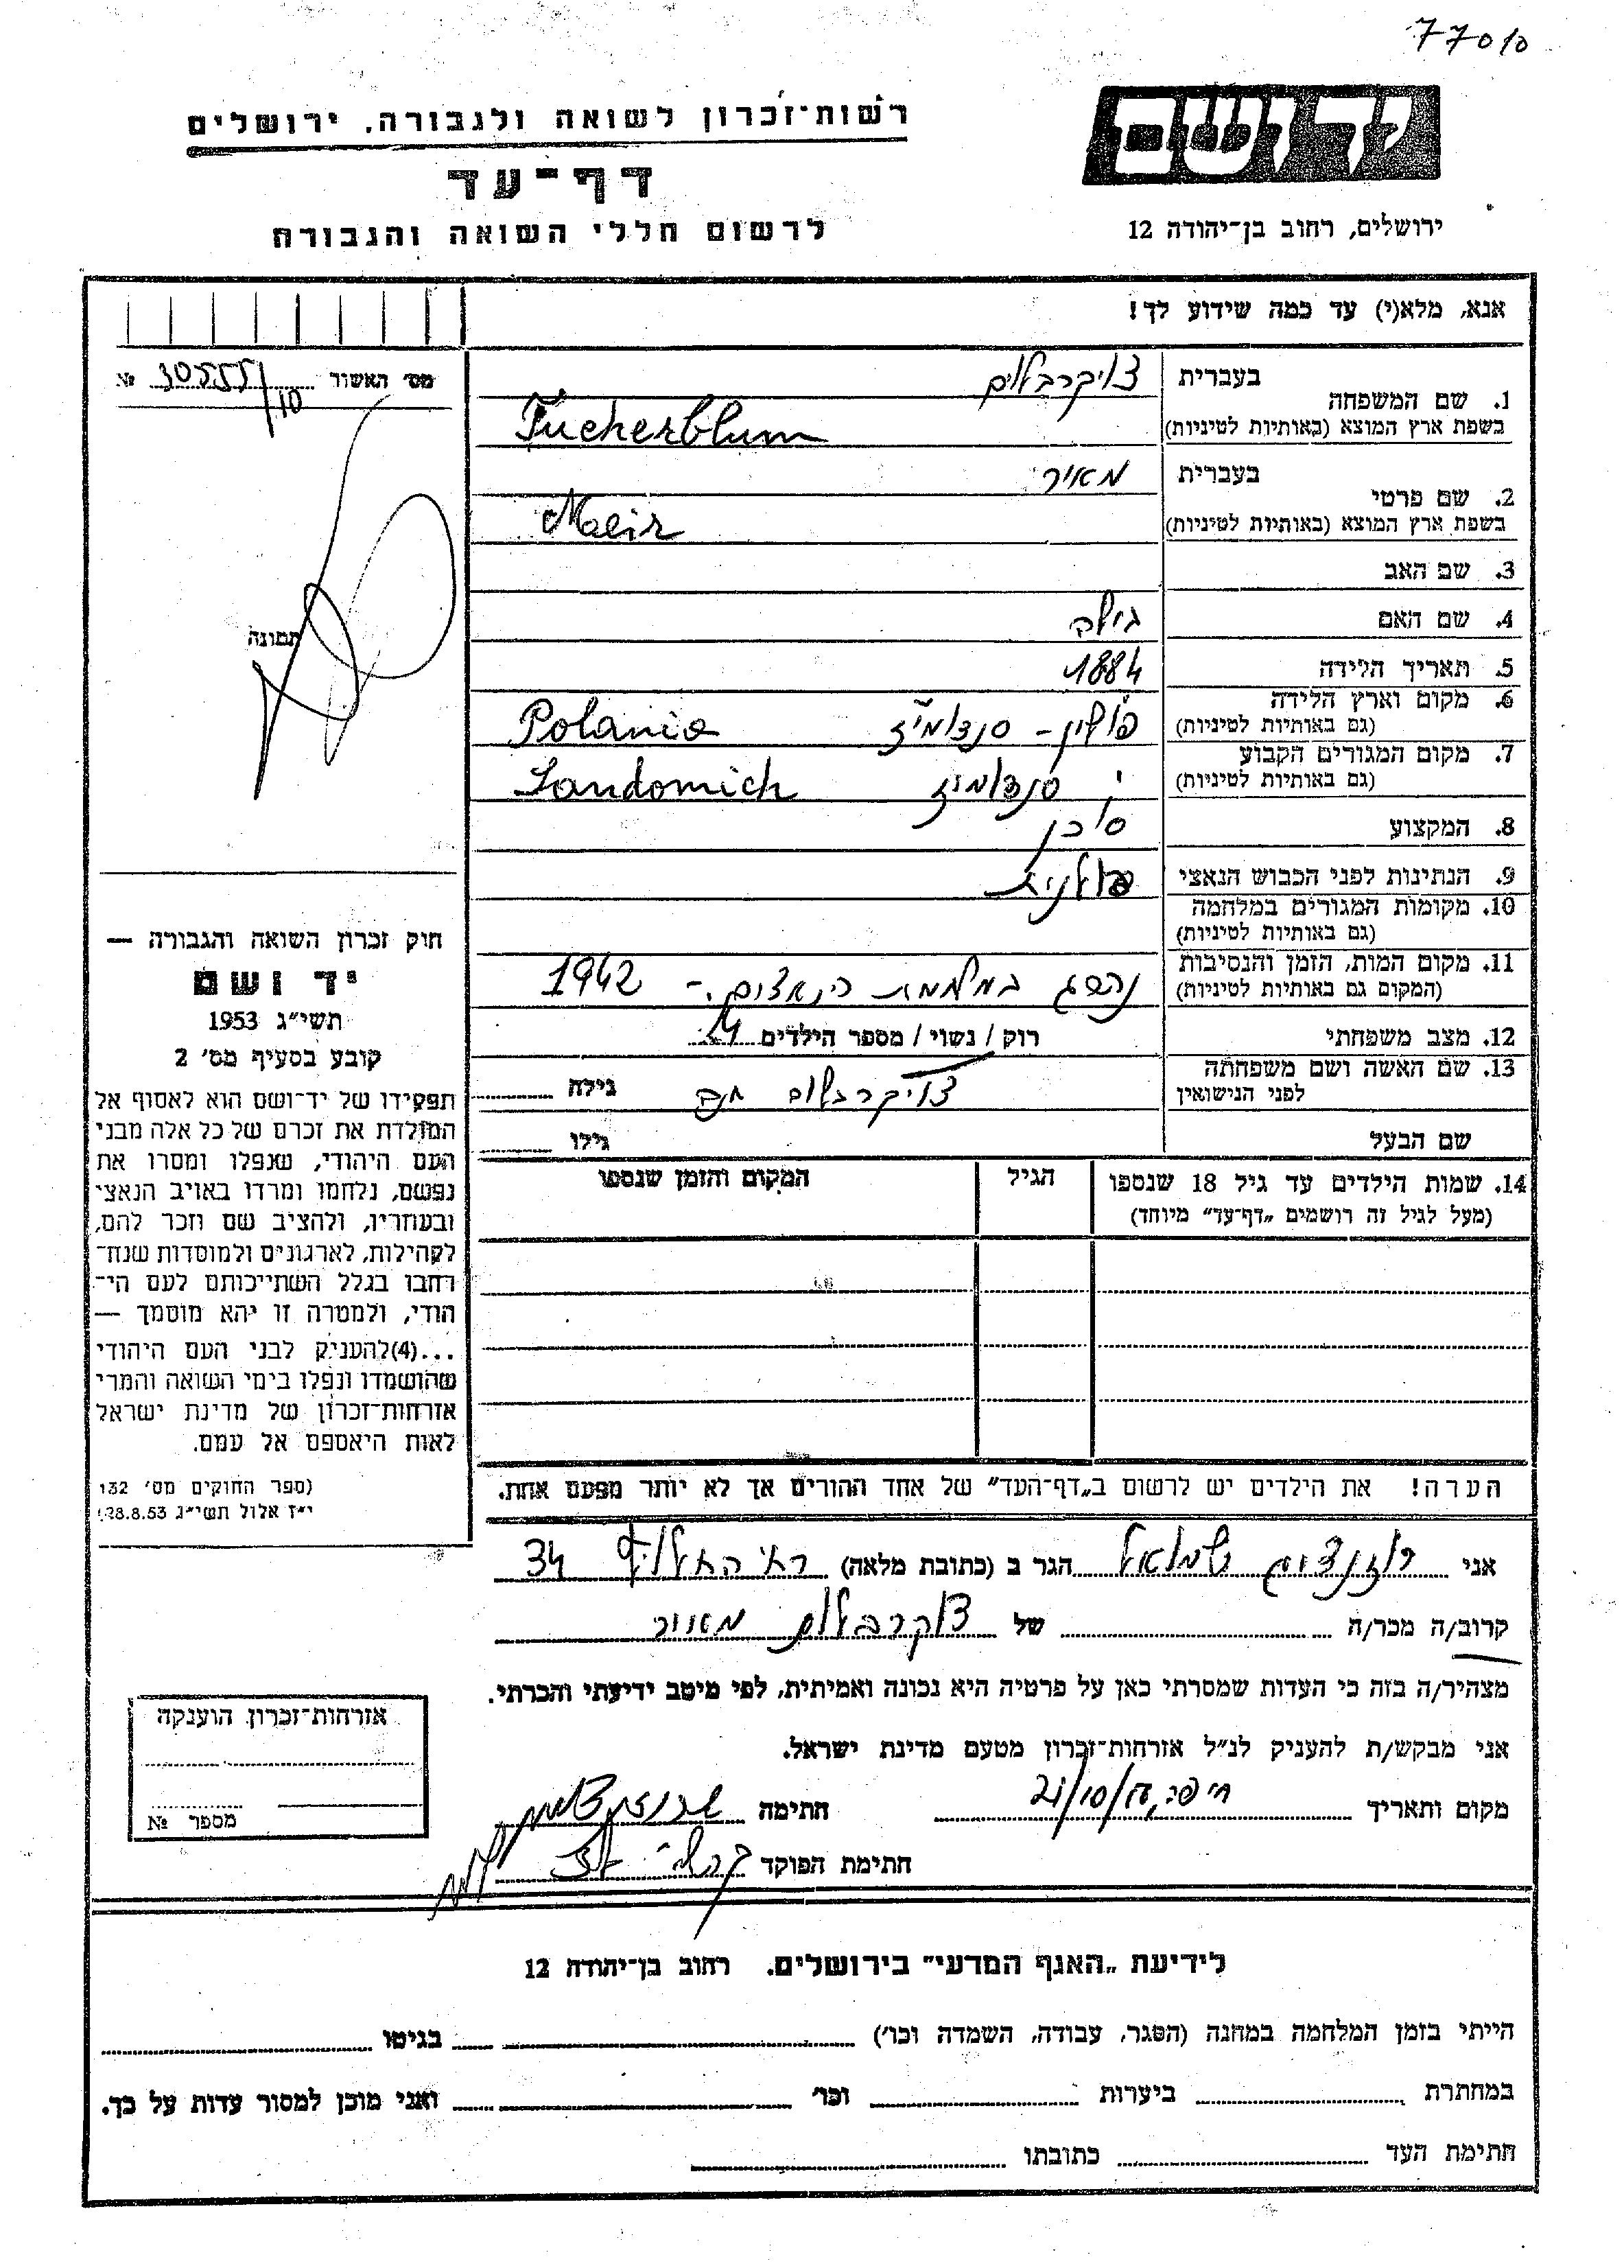 77010
יד ושם
רשות־זכרון לשואה ולגבורה, ירושלים
דף־עד
לרשום חללי השואה והגבורה
ירושלים, רחוב בן־יהודה 12
אנא, מלא(י) עד כמה שידוע לך!
מס׳ האשור № 30555/10
1. שם המשפחה
בעברית צויקרבלום
בשפת ארץ המוצא (באותיות לטיניות) Zucherblum
2. שם פרטי
בעברית מאיר
בשפת ארץ המוצא (באותיות לטיניות) Meir
3. שם האב
4. שם האם גילה
5. תאריך הלידה 1884
6. מקום וארץ הלידה
(גם באותיות לטיניות) פולין – סנדומיז Polania
7. מקום המגורים הקבוע
(גם באותיות לטיניות) סנדומיז Sandomich
8. המקצוע סוכן
9. הנתינות לפני הכבוש הנאצי פולנית
10. מקומות המגורים במלחמה
(גם באותיות לטיניות)
11. מקום המות, הזמן והנסיבות
(המקום גם באותיות לטיניות) נהרג במלחמת הנאצים – 1942
12. מצב משפחתי רוק / נשוי / מספר הילדים 4
13. שם האשה ושם משפחתה
לפני הנישואין צויקרבלום חנה גילה
שם הבעל גילו
14. שמות הילדים עד גיל 18 שנספו
(מעל לגיל זה רושמים „דף־עד״ מיוחד)
הגיל
המקום והזמן שנספו
הערה! את הילדים יש לרשום ב„דף־העד״ של אחד ההורים אך לא יותר מפעם אחת.
תמונה
חוק זכרון השואה והגבורה —
יד ושם
תשי״ג 1953
קובע בסעיף מס׳ 2
תפקידו של יד־ושם הוא לאסוף אל
המולדת את זכרם של כל אלה מבני
העם היהודי, שנפלו ומסרו את
נפשם, נלחמו ומרדו באויב הנאצי
ובעוזריו, ולהציב שם וזכר להם,
לקהילות, לארגונים ולמוסדות שנח־
רחבו בגלל השתייכותם לעם הי־
הודי, ולמטרה זו יהא מוסמך —
...(4)להעניק לבני העם היהודי
שהושמדו ונפלו בימי השואה והמרי
אזרחות־זכרון של מדינת ישראל
לאות היאספם אל עמם.
(ספר החוקים מס׳ 132
י״ז אלול תשי״ג 28.8.53)
אני שמואל הגר ב (כתובת מלאה) רח׳ החלוץ 34
קרוב/ה מכר/ה של צוקרבלום מאיר
מצהיר/ה בזה כי העדות שמסרתי כאן על פרטיה היא נכונה ואמיתית, לפי מיטב ידיעתי והכרתי.
אני מבקש/ת להעניק לנ״ל אזרחות־זכרון מטעם מדינת ישראל.
מקום ותאריך חיפה, חתימה
חתימת הפוקד
אזרחות־זכרון הוענקה
מספר №
לידיעת „האגף המדעי״ בירושלים. רחוב בן־יהודה 12
הייתי בזמן המלחמה במחנה (הסגר, עבודה, השמדה וכו׳) בגיטו
במחתרת ביערות וכו׳ ואני מוכן למסור עדות על כך.
חתימת העד כתובתו